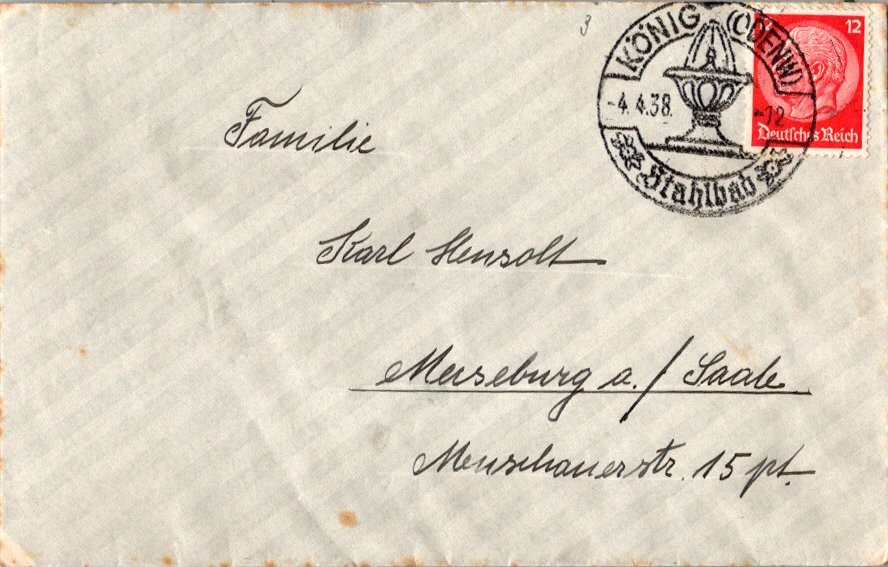 3
KÖNIG (ODENW)
-4.4.38.-12
Stahlbad
12
Deutsches Reich
Familie
Karl Hensolt
Merseburg a./Saale
15 pt.